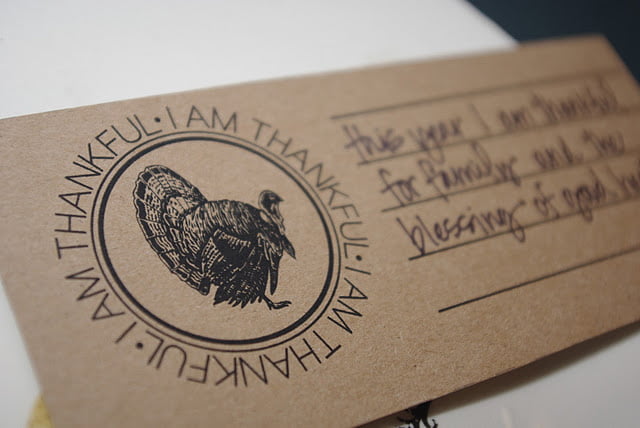 I AM THANKFUL • I AM THANKFUL • I AM THANKFUL • I AM THANKFUL •
this year I am thankful
for family and the
blessing of good